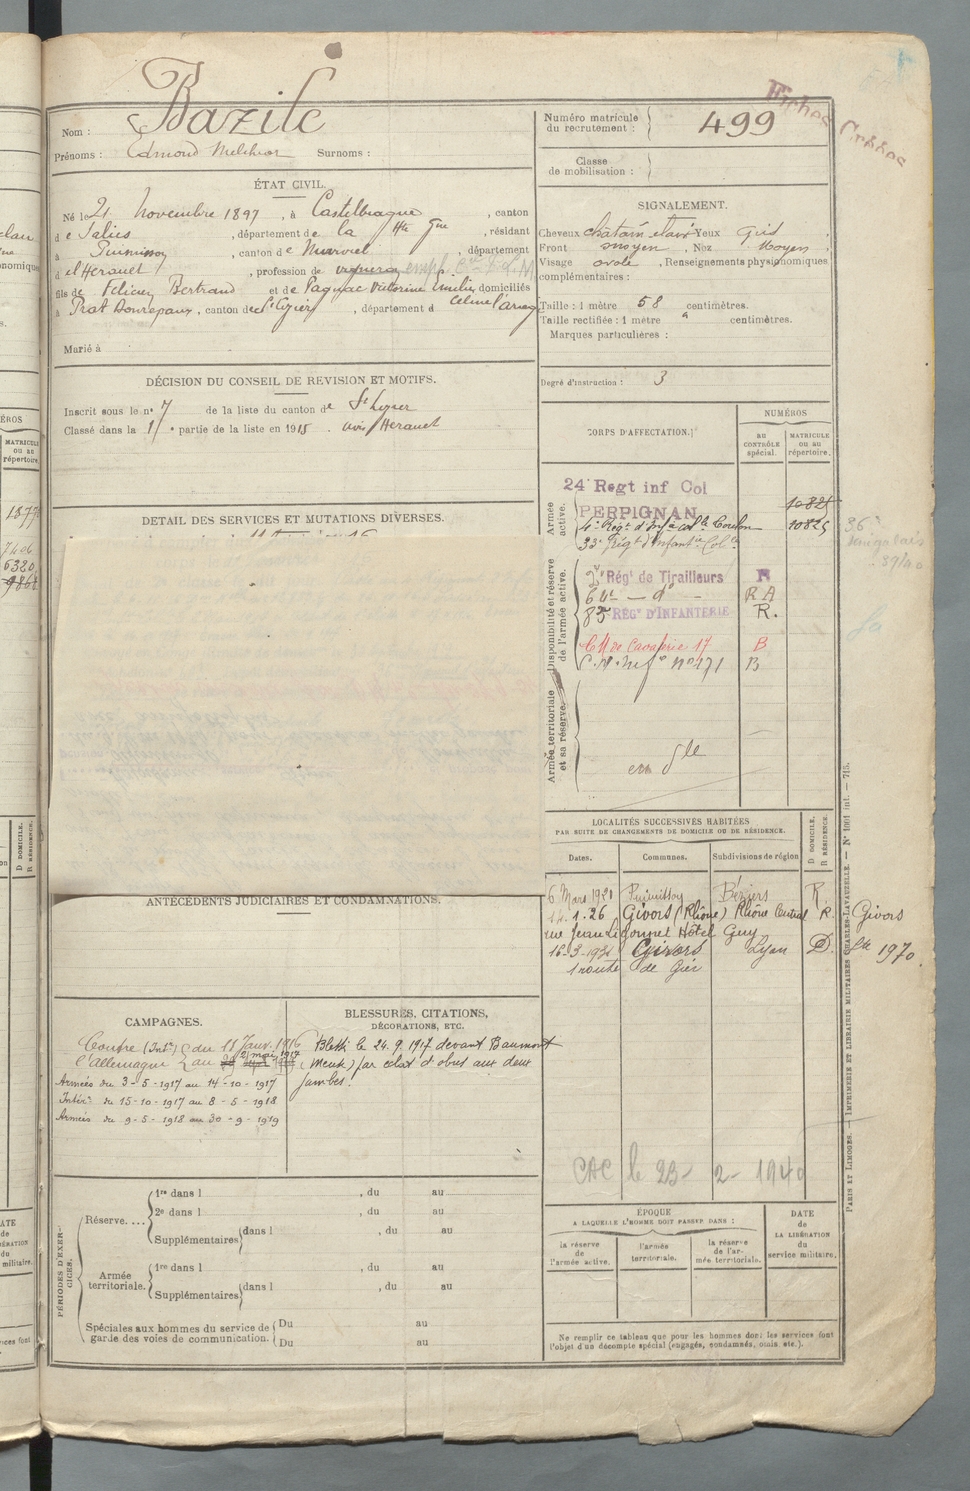 Bazile
Nom :
Prénoms : Edmond Melchior Surnoms :
Numéro matricule
du recrutement : 499
Classe
de mobilisation :
ÉTAT CIVIL.
Né le 21 Novembre 1897, à Castelbiague, canton
de Salies, département de la Hte Gne, résidant
à Puimisson, canton de Murviel, département
d el'Herault, profession de
fils de Felicien Bertrand et de Pagnac Victorine Emilie domiciliés
à Prat Bonrepaux, canton de St Lizier, département d
Marié à
SIGNALEMENT.
Cheveux chatain clair Yeux gris
Front moyen, Nez Moyen
Visage ovale, Renseignements physionomiques
complémentaires :
Taille : 1 mètre 58 centimètres.
Taille rectifiée : 1 mètre centimètres.
Marques particulières :
Degré d'instruction : 3
DÉCISION DU CONSEIL DE REVISION ET MOTIFS.
Inscrit sous le n° 7 de la liste du canton de St Lizier
Classé dans la 1re partie de la liste en 1915. avis Herault
DETAIL DES SERVICES ET MUTATIONS DIVERSES.
CORPS D'AFFECTATION.
NUMÉROS
AU
CONTRÔLE
spécial.
MATRICULE
ou au
répertoire.
Armée
active.
24e Regt inf Col
PERPIGNAN
10825
4e Régt d'Infie colle Toulon 10825
33e Régt d'Infantie Colle
Disponibilité et réserve
de l'armée active.
2e Régt de Tirailleurs R
64e — do — R A
85e REGt D'INFANTERIE R.
C M de Cavalerie 17 B
C. M. Infie no 171 B
Armée territoriale
et sa réserve.
LOCALITÉS SUCCESSIVES HABITÉES
PAR SUITE DE CHANGEMENTS DE DOMICILE OU DE RÉSIDENCE.
Dates. Communes. Subdivisions de région
D DOMICILE.
R RÉSIDENCE.
6 Mars 1921 Puimisson Béziers R.
14.1.26 Givors (Rhône) Rhône Central R. Givors
Hôtel Guy
16-3-1931 Givors Lyon D.
1 route de Gier
1970
CAC le 23-2-1940
ANTÉCÉDENTS JUDICIAIRES ET CONDAMNATIONS.
CAMPAGNES.
Contre (Intr) du 11 Janv. 1916
l'allemagne au 2 mai 1917
Armées du 3-5-1917 au 14-10-1917
Intérr du 15-10-1917 au 8-5-1918
Armées du 9-5-1918 au 30-9-1919
BLESSURES, CITATIONS,
DÉCORATIONS, ETC.
Blessé le 24.9.1917 devant Baumont
(Meuse) par éclat d'obus aux deux
jambes.
PÉRIODES D'EXERCICES.
Réserve....
1re dans l , du au
2e dans l , du au
Supplémentaires dans l , du au
Armée
territoriale.
1re dans l , du au
Supplémentaires dans l , du au
Spéciales aux hommes du service de
garde des voies de communication.
Du au
Du au
ÉPOQUE
A LAQUELLE L'HOMME DOIT PASSER DANS :
la réserve
de
l'armée active.
l'armée
territoriale.
la réserve
de l'ar-
mée territoriale.
DATE
de
LA LIBÉRATION
du
service militaire.
Ne remplir ce tableau que pour les hommes dont les services font
l'objet d'un décompte spécial (engagés, condamnés, omis etc.).
PARIS ET LIMOGES. — IMPRIMERIE ET LIBRAIRIE MILITAIRES CHARLES-LAVAUZELLE. — N° 1001 int. — 715.